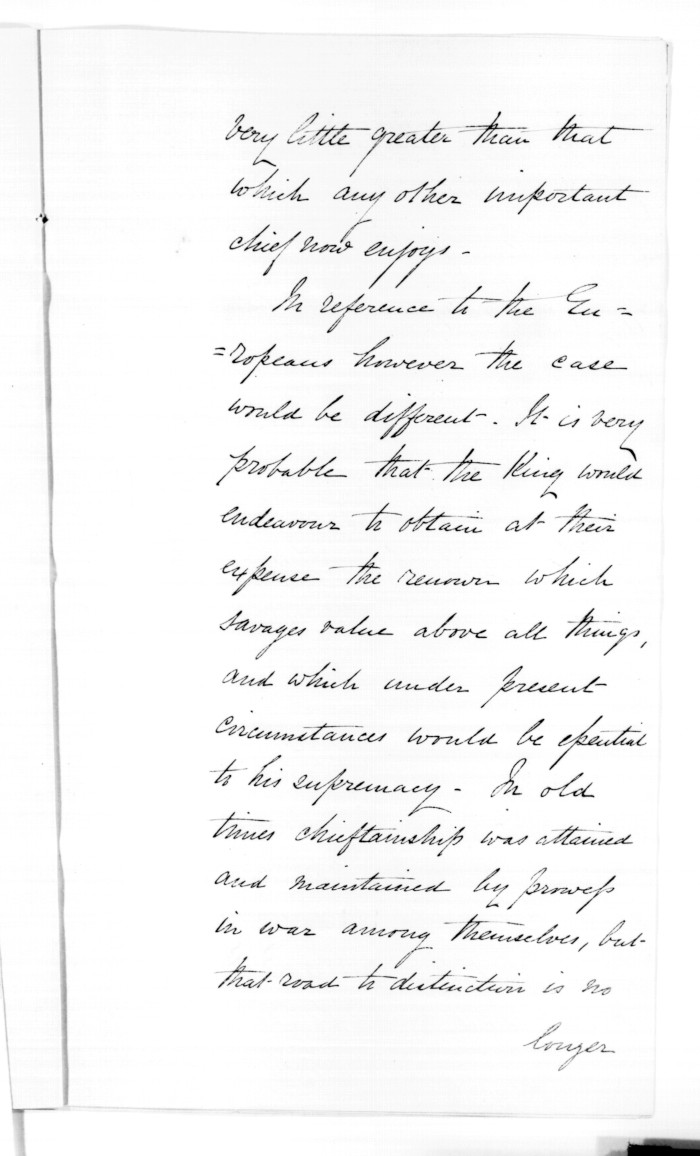 very little greater than that
which any other important
chief now enjoys -
In reference to the Eu=
=ropeans however the case
would be different. It is very
probable that the King would
endeavour to obtain at their
expense the renown which
savages value above all things,
and which under present
circumstances would be essential
to his supremacy - In old
times chieftainship was attained
and maintained by prowess
in war among themselves, but
that road to distinction is no
longer